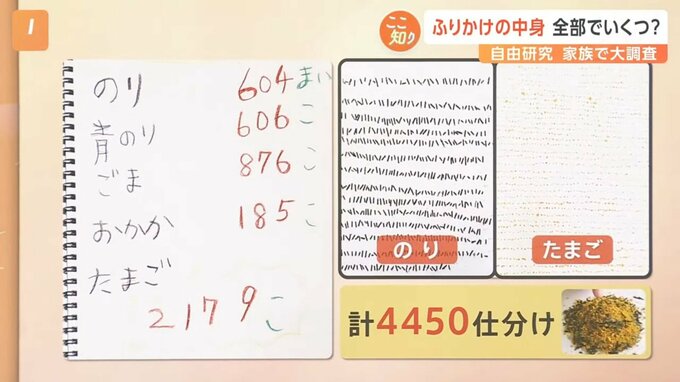 ここ知り
ふりかけの中身 全部でいくつ?
自由研究 家族で大調査
のり 604まい
青のり 606こ
ごま 876こ
おかか 185こ
たまご
2179こ
のり
たまご
計4450仕分け